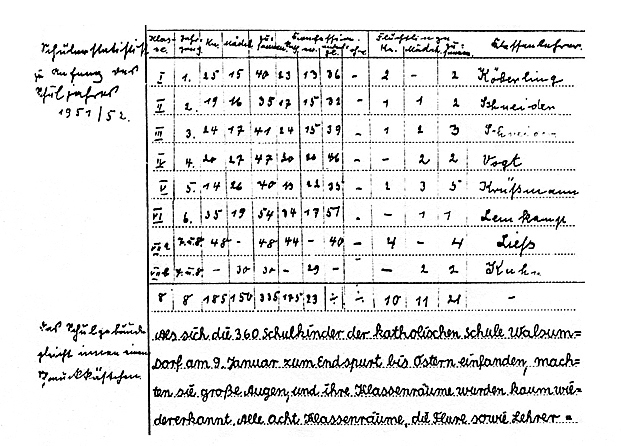 Schulerstatistik
zu Anfang des
Schuljahres
1951/52.
Klasse. Kn. Mädch. Zusammen Konfession. Flüchtlinge. Klassenlehrer.
Kn. Mädch. Zusam.
I 1. 25 15 40 23 13 36 - 2 - 2 Köberling
II 2. 19 16 35 17 15 32 - 1 1 2 Schneider
III 3. 24 17 41 24 15 39 - 1 2 3
IV 4. 20 27 47 20 46 - - 2 2 Vogt
V 5. 14 26 40 13 22 35 - 2 3 5 Krüßmann
VI 6. 35 19 54 34 17 51 - - 1 1 Lemkamp
VII a 7.u.8. 48 - 48 44 - 40 - 4 - 4 Liefs
VII b 7.u.8. - 30 30 - 29 - - 2 2 Kuhn
8 8 185 150 335 175 23 ÷ ÷ 10 11 21 -
Das Schulgebäude
gleicht innen einem
Schmuckkästchen.
Als sich die 360 Schulkinder der katholischen Schule Walsum=
dorf am 9. Januar zum Endspurt bis Ostern einfanden, mach=
ten sie große Augen, und ihre Klassenräume wurden kaum wie=
dererkannt. Alle acht Klassenräume, die Flure sowie Lehrer=